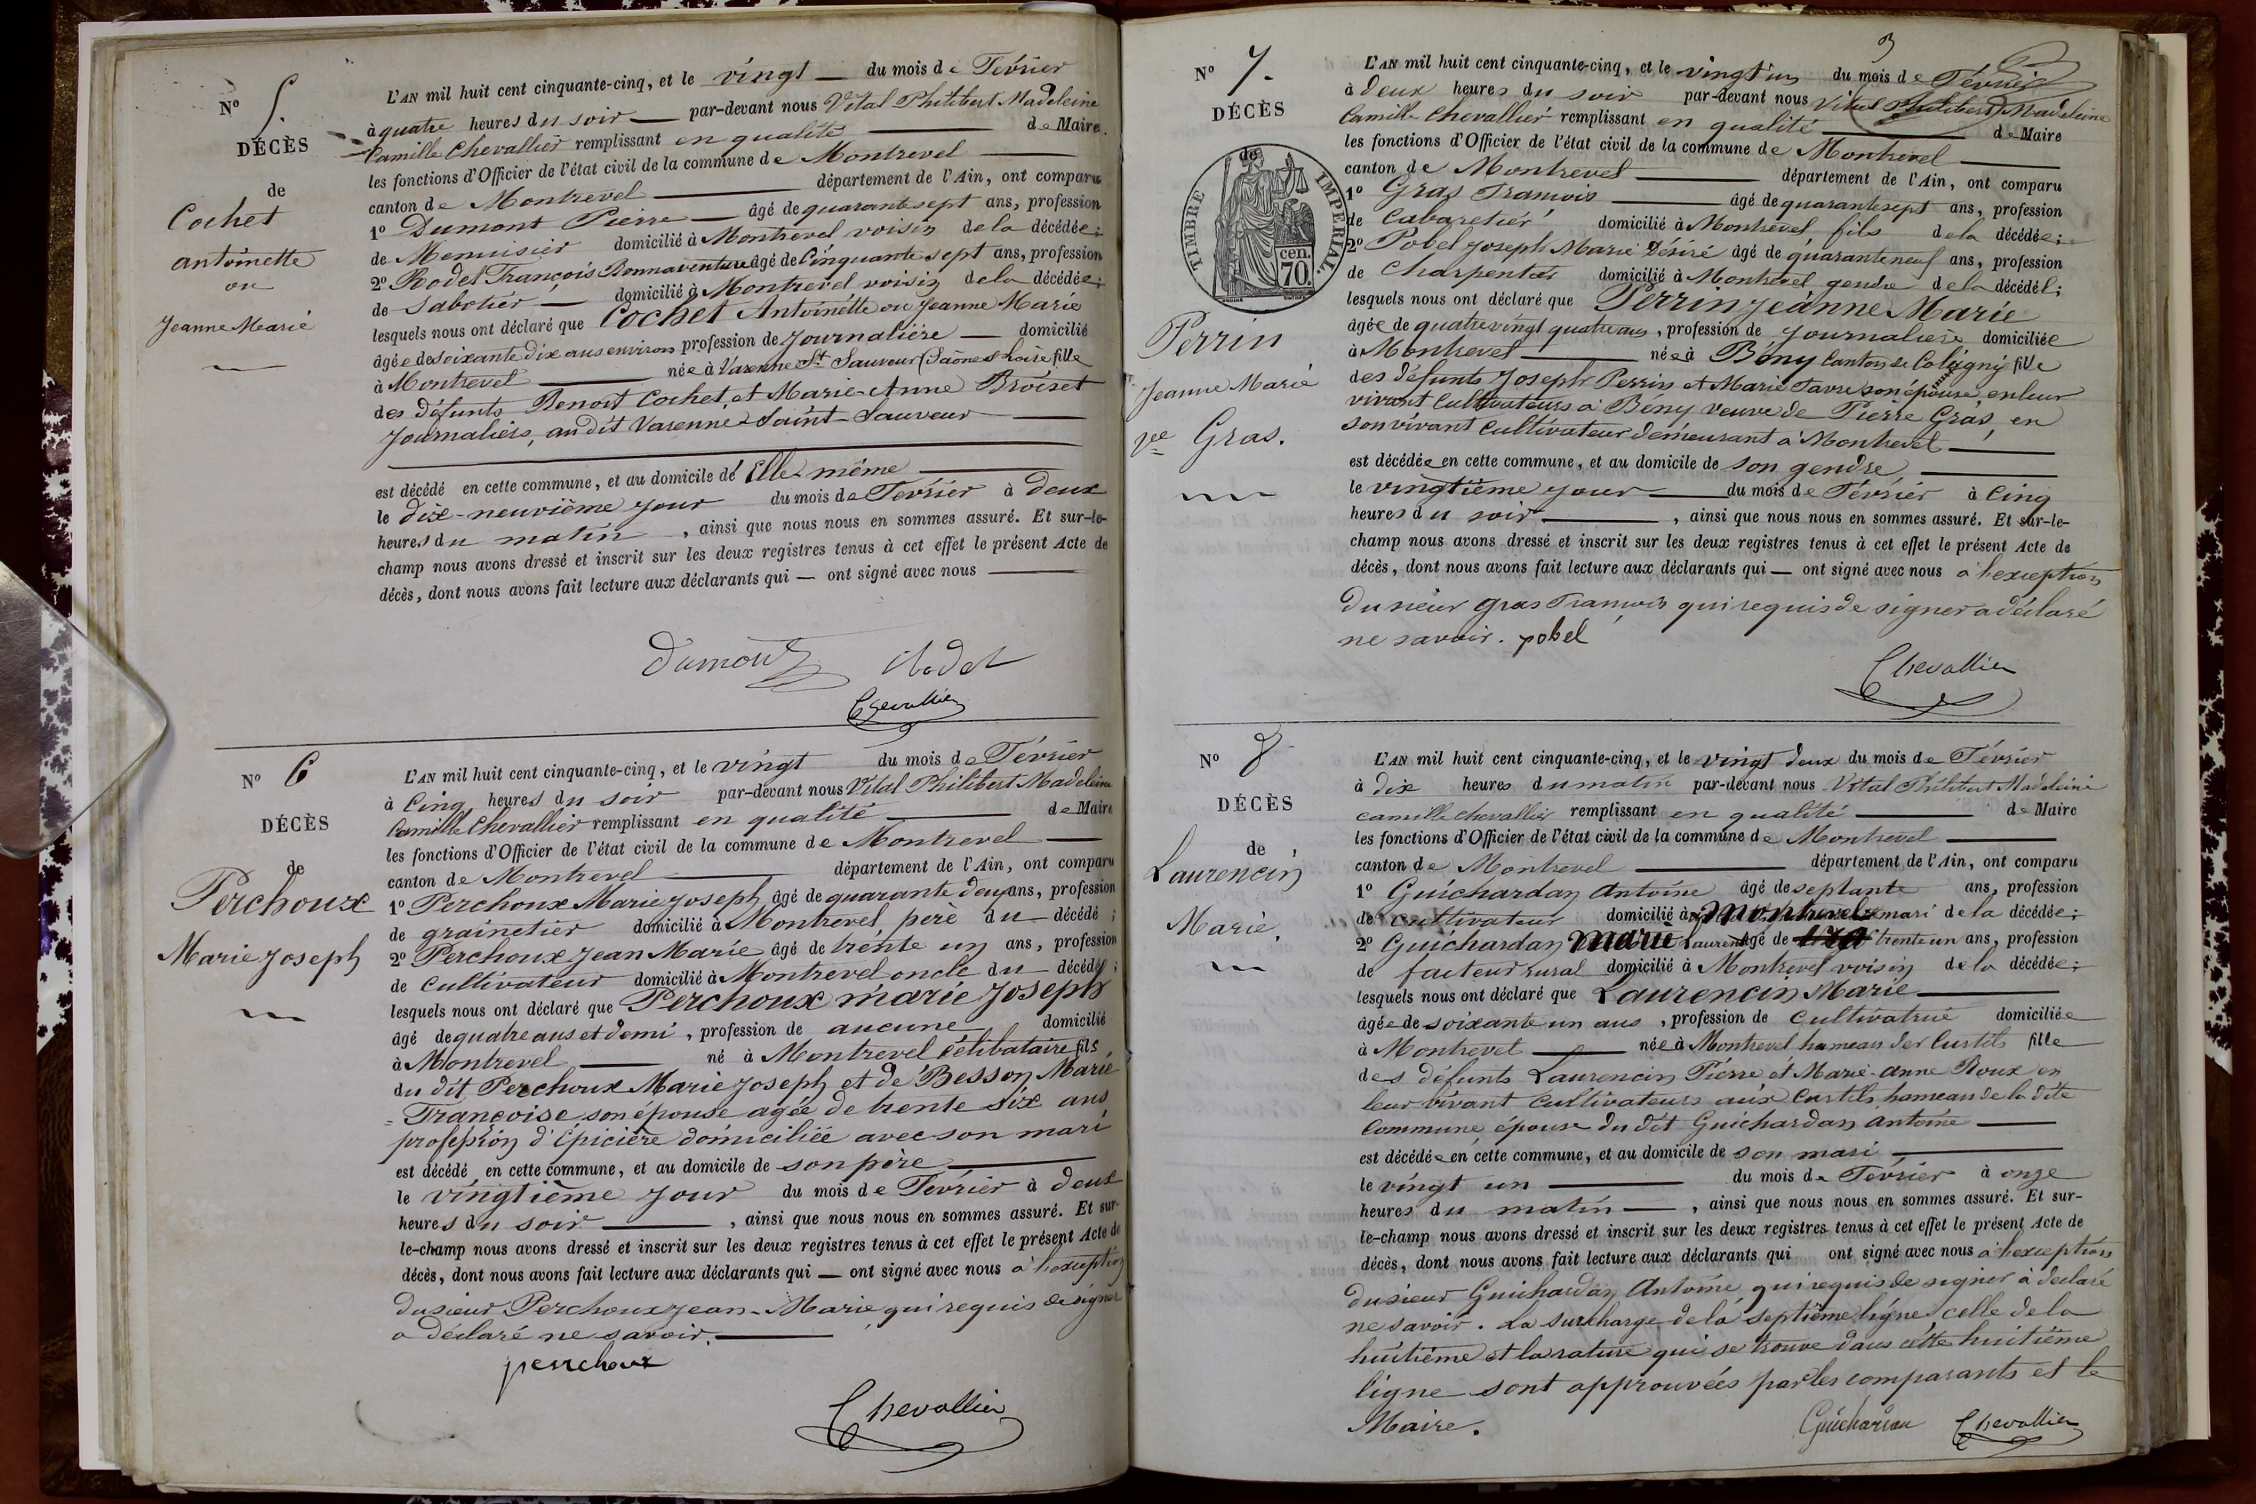 Nº 5.
DÉCÈS
de
Cochet
antoinette
ou
Jeanne Marie
L'AN mil huit cent cinquante-cinq, et le vingt du mois de Février
à quatre heures du soir par-devant nous Vital Philibert Madeleine
Camille Chevallier remplissant en qualité de Maire.
les fonctions d'Officier de l'état civil de la commune de Montrevel
canton de Montrevel département de l'Ain, ont comparu
1º Dumont Pierre âgé de quarante sept ans, profession
de Menuisier domicilié à Montrevel voisin de la décédée;
2º Rodet François Bonnaventure âgé de Cinquante sept ans, profession
de Sabotier domicilié à Montrevel voisin de la décédée;
lesquels nous ont déclaré que Cochet Antoinette ou Jeanne Marie
âgée de soixante dix ans environ profession de Journalière domicilié
à Montrevel née à Varenne St Sauveur (Saône et Loire fille
des défunts Benoit Cochet et Marie-Anne Broiset
journaliers, au dit Varenne Saint Sauveur
est décédé en cette commune, et au domicile de Elle même
le dix-neuvième jour du mois de Février à deux
heures du matin, ainsi que nous nous en sommes assuré. Et sur-le-
champ nous avons dressé et inscrit sur les deux registres tenus à cet effet le présent Acte de
décès, dont nous avons fait lecture aux déclarants qui — ont signé avec nous
Dumont Rodet
Chevallier
Nº 6
DÉCÈS
de
Perchoux
Marie Joseph
L'AN mil huit cent cinquante-cinq, et le vingt du mois de Février
à Cinq heures du soir par-devant nous Vital Philibert Madeleine
Camille Chevallier remplissant en qualité de Maire
les fonctions d'Officier de l'état civil de la commune de Montrevel
canton de Montrevel département de l'Ain, ont comparu
1º Perchoux Marie Joseph âgé de quarante deux ans, profession
de grainetier domicilié à Montrevel père du décédé;
2º Perchoux Jean Marie âgé de trente un ans, profession
de Cultivateur domicilié à Montrevel oncle du décédé;
lesquels nous ont déclaré que Perchoux marie Joseph
âgé de quatre ans et demi, profession de aucune domicilié
à Montrevel né à Montrevel Célibataire fils
du dit Perchoux Marie Joseph et de Besson Marie
= Françoise, son épouse agée de trente six ans
profession d'épicière domiciliée avec son mari
est décédé en cette commune, et au domicile de son père
le vingtième jour du mois de Février à deux
heures du soir, ainsi que nous nous en sommes assuré. Et sur-
le-champ nous avons dressé et inscrit sur les deux registres tenus à cet effet le présent Acte de
décès, dont nous avons fait lecture aux déclarants qui — ont signé avec nous à l'exception
du sieur Perchoux Jean-Marie qui requis de signer
a déclaré ne savoir.
perrchoux
Chevallier
3
Nº 7.
DÉCÈS
de
TIMBRE IMPÉRIAL.
cen.
70.
Perrin
Jeanne Marie
vve Gras.
L'AN mil huit cent cinquante-cinq, et le vingt un du mois de Février
à deux heures du soir par-devant nous Vital Philibert Madeleine
Camille Chevallier remplissant en qualité de Maire
les fonctions d'Officier de l'état civil de la commune de Montrevel
canton de Montrevel département de l'Ain, ont comparu
1º Gras François âgé de quarante sept ans, profession
de Cabaretier domicilié à Montrevel fils de la décédée;
2º Pobel Joseph Marie Désiré âgé de quarante neuf ans, profession
de Charpentier domicilié à Montrevel gendre de la décédée;
lesquels nous ont déclaré que Perrin Jeanne Marie
âgée de quatre vingt quatre ans, profession de Journalière domiciliée
à Montrevel née à Bény Canton de Coligny fille
des défunts Joseph Perrin et Marie Favre son épouse en leur
vivant Cultivateurs à Bény veuve de Pierre Gras, en
son vivant Cultivateur demeurant à Montrevel
est décédée en cette commune, et au domicile de son gendre
le vingtième jour du mois de Février à Cinq
heures du soir, ainsi que nous nous en sommes assuré. Et sur-le-
champ nous avons dressé et inscrit sur les deux registres tenus à cet effet le présent Acte de
décès, dont nous avons fait lecture aux déclarants qui — ont signé avec nous à l'exception
du sieur Gras François qui requis de signer a déclaré
ne savoir. pobel
Chevallier
Nº 8
DÉCÈS
de
Laurencin
Marie.
L'AN mil huit cent cinquante-cinq, et le vingt deux du mois de Février
à dix heures du matin par-devant nous Vital Philibert Madeleine
camille chevallier remplissant en qualité de Maire
les fonctions d'Officier de l'état civil de la commune de Montrevel
canton de Montrevel département de l'Ain, ont comparu
1º Guichardan Antoine âgé de septante ans, profession
de Cultivateur domicilié à Montrevel mari de la décédée;
2º Guichardan Marie Laurent âgé de trente un ans, profession
de facteur rural domicilié à Montrevel voisin de la décédée;
lesquels nous ont déclaré que Laurencin Marie
âgée de soixante un ans, profession de Cultivatrice domiciliée
à Montrevel née à Montrevel hameau des Curtils fille
des défunts Laurencin Pierre et Marie-anne Roux en
leur vivant Cultivateurs aux Curtils, hameau de la dite
Commune, épouse du dit Guichardan Antoine
est décédée en cette commune, et au domicile de son mari
le vingt un du mois de Février à onze
heures du matin, ainsi que nous nous en sommes assuré. Et sur-
le-champ nous avons dressé et inscrit sur les deux registres tenus à cet effet le présent Acte de
décès, dont nous avons fait lecture aux déclarants qui ont signé avec nous à l'exception
du sieur Guichardan Antoine qui requis de signer à declaré
ne savoir. La surcharge de la septième ligne, celle de la
huitième et la rature qui se trouve dans cette huitième
ligne sont approuvées par les comparants et le
Maire.
Guichardan Chevallier